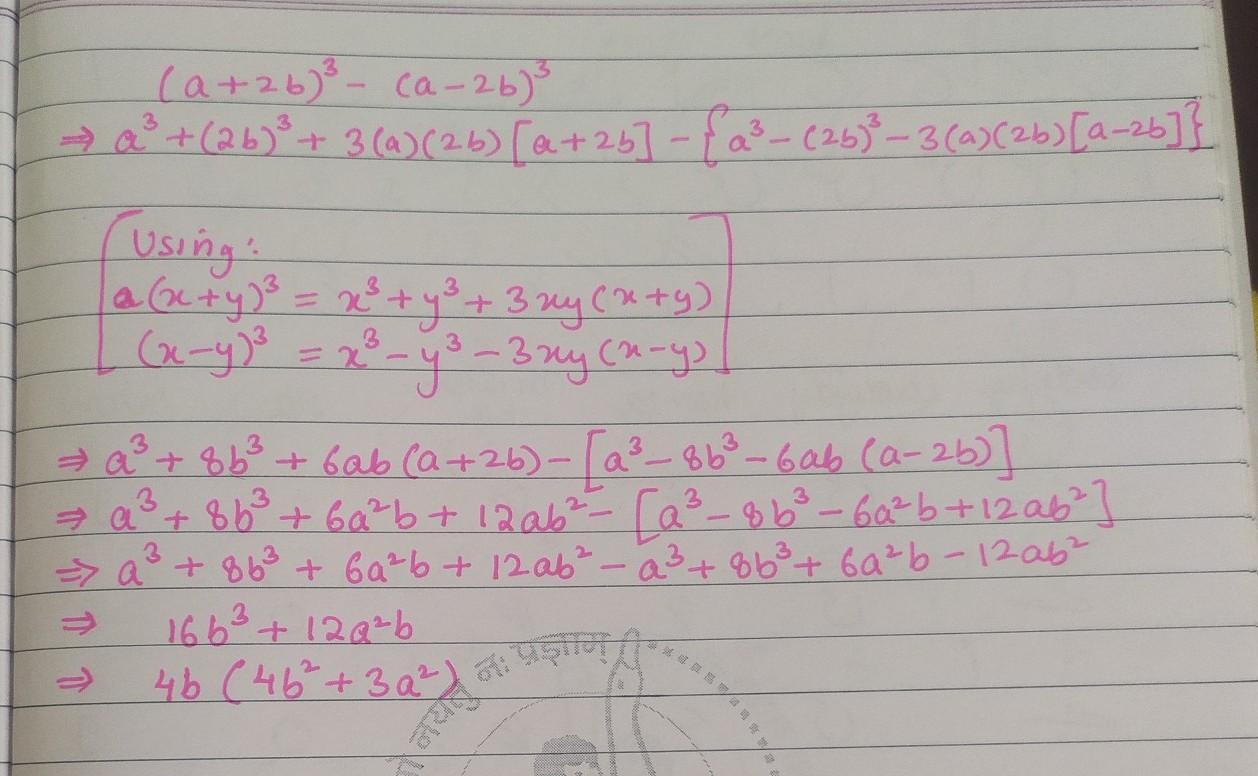 (a+2b)³ - (a-2b)³
⇒ a³ + (2b)³ + 3(a)(2b)[a+2b] - {a³ - (2b)³ - 3(a)(2b)[a-2b]}
Using:
(x+y)³ = x³ + y³ + 3xy(x+y)
(x-y)³ = x³ - y³ - 3xy(x-y)
⇒ a³ + 8b³ + 6ab(a+2b) - [a³ - 8b³ - 6ab(a-2b)]
⇒ a³ + 8b³ + 6a²b + 12ab² - [a³ - 8b³ - 6a²b + 12ab²]
⇒ a³ + 8b³ + 6a²b + 12ab² - a³ + 8b³ + 6a²b - 12ab²
⇒ 16b³ + 12a²b
⇒ 4b(4b² + 3a²)
नयतु नः प्रज्ञाम्